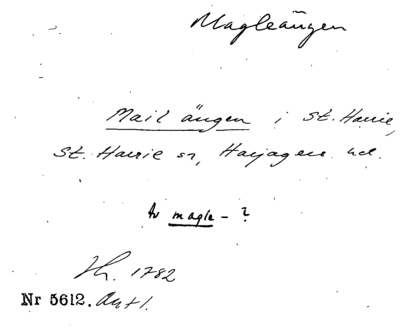 Magleängen
Mail ängen i St. Harrie,
St. Harrie sn, Harjagers hd.
Av magle- ?
1782
Nr 5612.